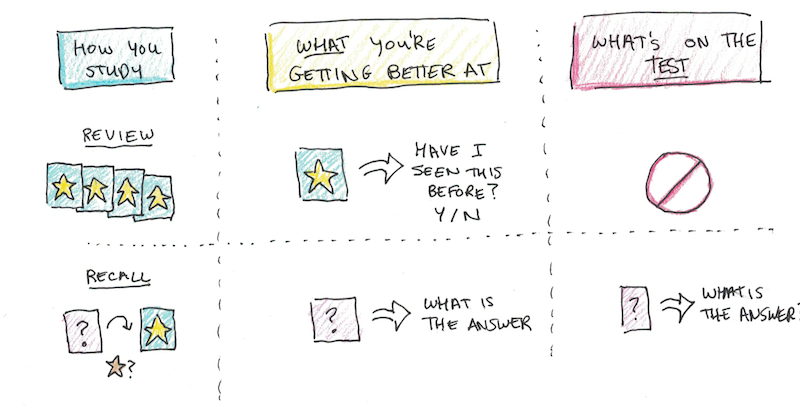 HOW YOU
STUDY
WHAT YOU'RE
GETTING BETTER AT
WHAT'S ON THE
TEST
REVIEW
HAVE I
SEEN THIS
BEFORE?
Y/N
RECALL
?
?
WHAT IS
THE ANSWER
?
WHAT IS
THE ANSWER?
?